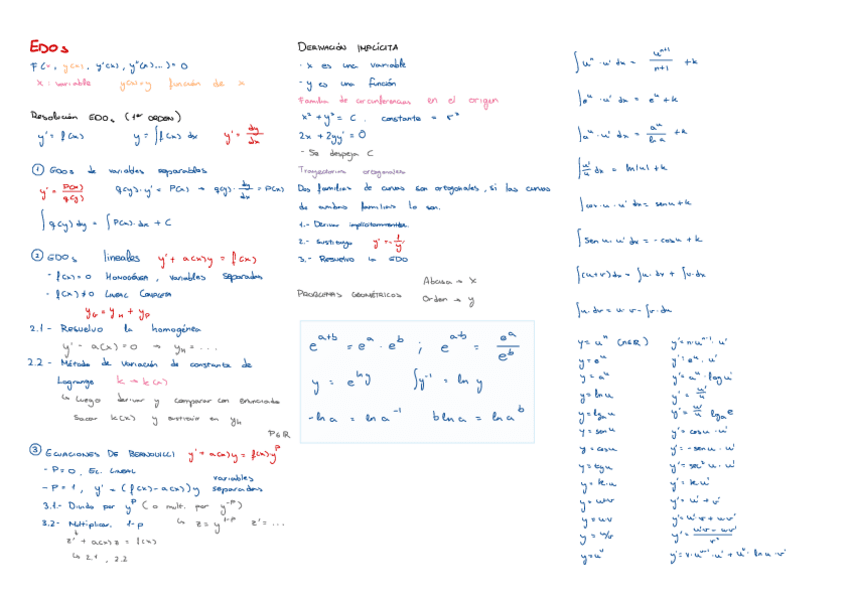 EDOs
F(x, y(x), y'(x), y''(x)...) = 0
x : variable y(x)=y función de x
Resolución EDOs (1er ORDEN)
y' = f(x) y = ∫f(x) dx y' = dy/dx
① EDOs de variables separables
y' = P(x)/q(y) q(y)·y' = P(x) → q(y)·dy/dx = P(x)
∫q(y) dy = ∫P(x)·dx + C
② EDOs lineales y' + a(x)y = f(x)
- f(x) = 0 HOMOGÉNEA, variables separadas
- f(x) ≠ 0 LINEAL COMPLETA
yG = yH + yP
2.1 - Resuelvo la homogénea
y' - a(x) = 0 → yH = ...
2.2 - Método de variación de constante de
Lagrange k → k(x)
↳ Luego derivar y comparar con enunciado
Sacar k(x) y sustituir en yH
P∈R
③ ECUACIONES DE BERNOUILLI y' + a(x)y = f(x)y^P
- P = 0, EC. LINEAL
- P = 1, y' = (f(x) - a(x))y variables separadas
3.1 - Divido por y^P (o multi. por y^-P)
3.2 - Multiplicar 1-p ↳ z = y^1-P z' = ...
z' + a(x)z = f(x)
↳ 2.1, 2.2
DERIVACIÓN IMPLÍCITA
· x es una variable
· y es una función
Familia de circunferencias en el origen
x² + y² = C . constante = r²
2x + 2yy' = 0
- Se despeja C
Trayectorias ortogonales
Dos familias de curvas son ortogonales, si las curvas
de ambas familias lo son.
1.- Derivar implícitamente
2.- Sustituyo y' = -1/y'
3.- Resuelvo la EDO
PROBLEMAS GEOMÉTRICOS
Abcisa → x
Orden → y
e^a+b = e^a · e^b ; e^a-b = e^a/e^b
y = e^ln y ∫y^-1 = ln y
-ln a = ln a^-1 b ln a = ln a^b
∫u^n · u' dx = u^n+1/n+1 + k
∫e^u · u' dx = e^u + k
∫a^u · u' dx = a^u/ln a + k
∫u'/u dx = ln|u| + k
∫cos u · u' dx = sen u + k
∫sen u · u' dx = -cos u + k
∫(u+v) dx = ∫u·dx + ∫v·dx
∫u·dv = u·v - ∫v·du
y = u^n (n∈R) y' = n·u^n-1 · u'
y = e^u y' = e^u · u'
y = a^u y' = a^u · log u'
y = ln u y' = u'/u
y = lga u y' = u'/u lga e
y = sen u y' = cos u · u'
y = cos u y' = -sen u · u'
y = tg u y' = sec² u · u'
y = k·u y' = k·u'
y = u+v y' = u' + v'
y = uv y' = u'v + uv'
y = u/v y' = u'v - uv'/v²
y = u^v y' = v·u^v-1 · u' + u^v · ln u · v'